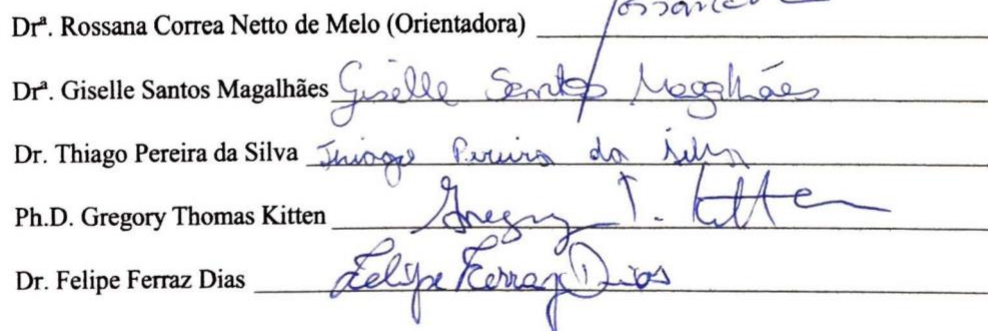 Drª. Rossana Correa Netto de Melo (Orientadora)
Drª. Giselle Santos Magalhães Giselle Santos Magalhães
Dr. Thiago Pereira da Silva Thiago Pereira da Silva
Ph.D. Gregory Thomas Kitten Gregory T. Kitten
Dr. Felipe Ferraz Dias Felipe Ferraz Dias